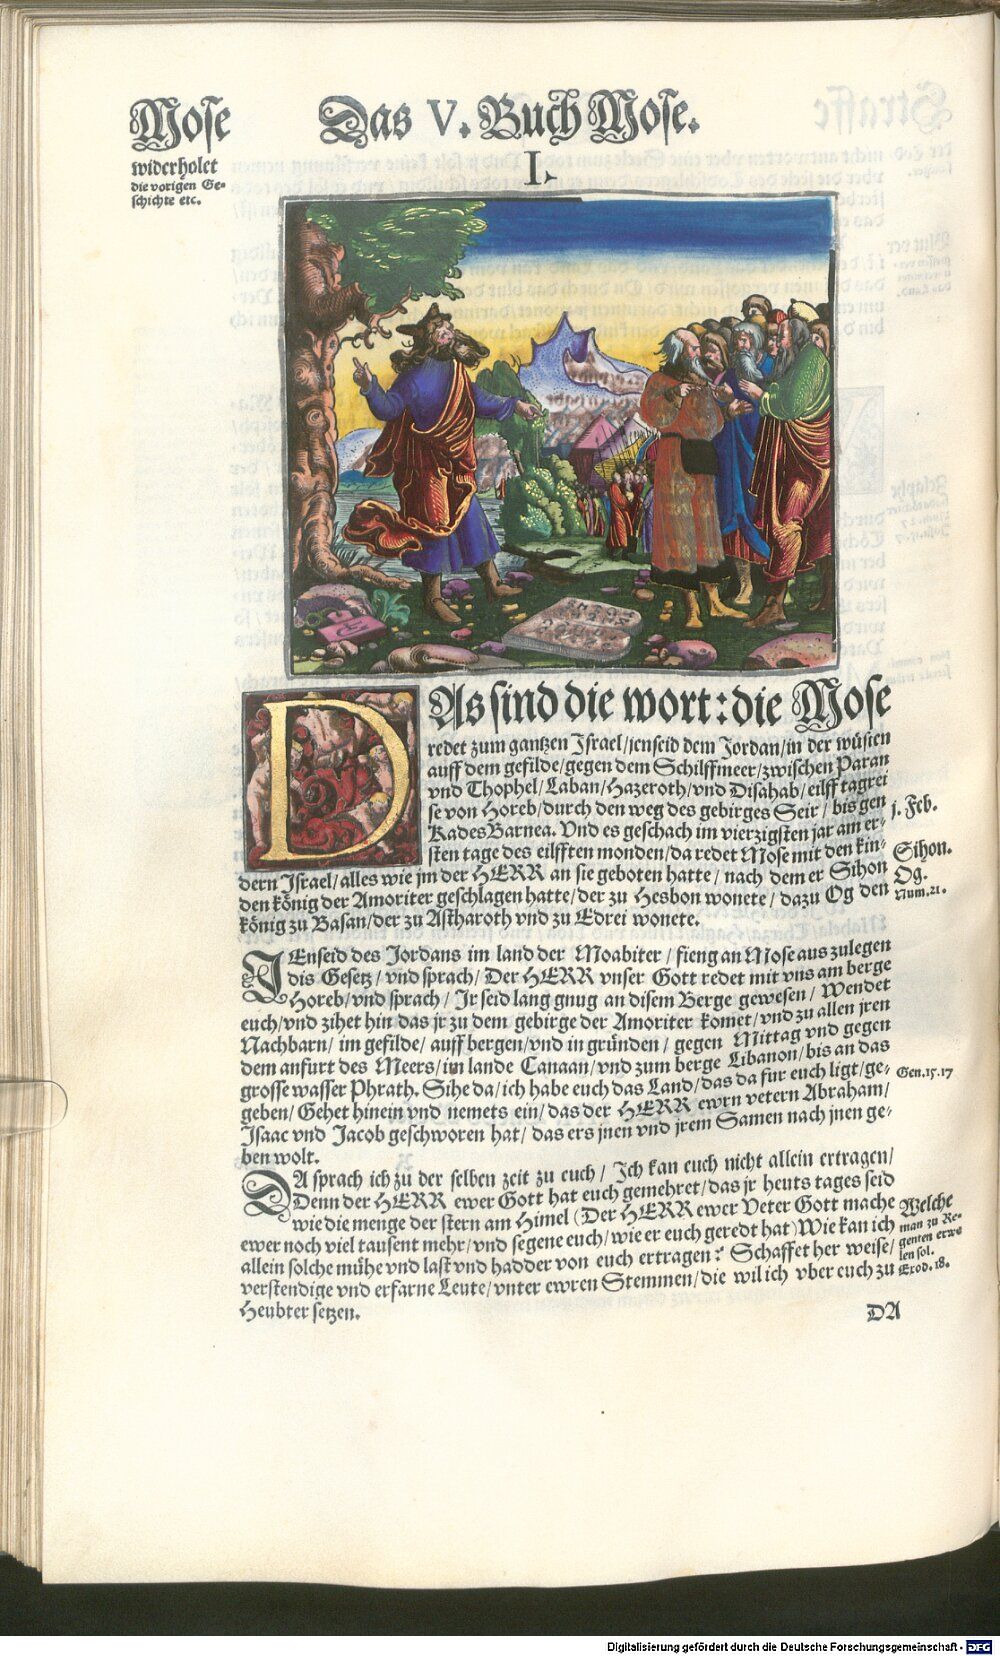 Mose
widerholet
die vorigen Ge-
schichte etc.
Das V. Buch Mose.
I.
DAs sind die wort: die Mose
redet zum gantzen Jsrael/ jenseid dem Jordan/ in der wüsten
auff dem gefilde/ gegen dem Schilffmeer/ zwischen Paran
vnd Thophel/ Laban/ Hazeroth/ vnd Disahab/ eilff tagrei
se von Horeb/ durch den weg des gebirges Seir/ bis gen
KadesBarnea. Vnd es geschach im vierzigsten jar am er-
sten tage des eilfften monden/ da redet Mose mit den kin-
dern Jsrael/ alles wie jm der HERR an sie geboten hatte/ nach dem er Sihon
den könig der Amoriter geschlagen hatte/ der zu Hesbon wonete/ dazu Og den
könig zu Basan/ der zu Astharoth vnd zu Edrei wonete.
j. Feb.
Sihon.
Og.
Num. 21.
JEnseid des Jordans im land der Moabiter/ fieng an Mose aus zulegen
dis Gesetz/ vnd sprach/ Der HERR vnser Gott redet mit vns am berge
Horeb/ vnd sprach/ Jr seid lang gnug an disem Berge gewesen/ Wendet
euch/ vnd zihet hin das jr zu dem gebirge der Amoriter komet/ vnd zu allen jren
Nachbarn/ im gefilde/ auff bergen/ vnd in gründen/ gegen Mittag vnd gegen
dem anfurt des Meers/ im lande Canaan/ vnd zum berge Libanon/ bis an das
grosse wasser Phrath. Sihe da/ ich habe euch das Land/ das da fur euch ligt/ ge-
geben/ Gehet hinein vnd nemets ein/ das der HERR ewrn vetern Abraham/
Jsaac vnd Jacob geschworen hat/ das ers jnen vnd jrem Samen nach jnen ge-
ben wolt.
Gen. 15. 17
DA sprach ich zu der selben zeit zu euch/ Jch kan euch nicht allein ertragen/
Denn der HERR ewer Gott hat euch gemehret/ das jr heuts tages seid
wie die menge der stern am Himel (Der HERR ewer Veter Gott mache
ewer noch viel tausent mehr/ vnd segene euch/ wie er euch geredt hat) Wie kan ich
allein solche mühe vnd last vnd hadder von euch ertragen? Schaffet her weise/
verstendige vnd erfarne Leute/ vnter ewren Stemmen/ die wil ich vber euch zu
Heubter setzen.
Welche
man zu Re-
genten erwe
len sol.
Exod. 18.
DA
Digitalisierung gefördert durch die Deutsche Forschungsgemeinschaft - DFG